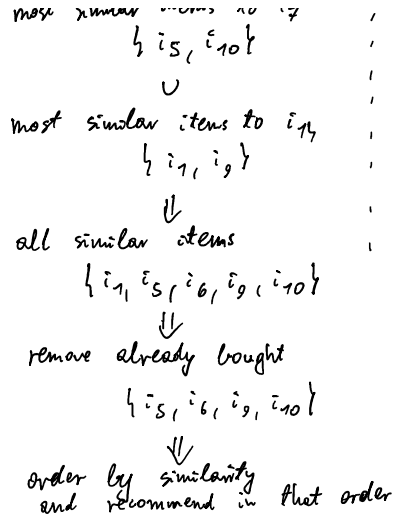 most similar items to i7
{ i5, i10 }
∪
most similar items to i14
{ i1, i9 }
⇓
all similar items
{ i1, i5, i6, i9, i10 }
⇓
remove already bought
{ i5, i6, i9, i10 }
⇓
order by similarity
and recommend in that order